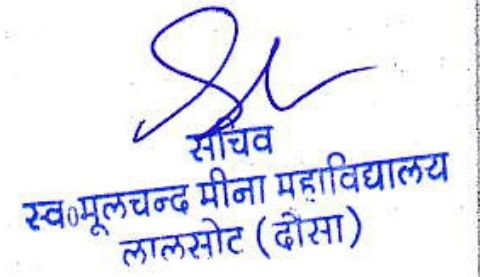 सचिव
स्व०मूलचन्द मीना महाविद्यालय
लालसोट (दौसा)